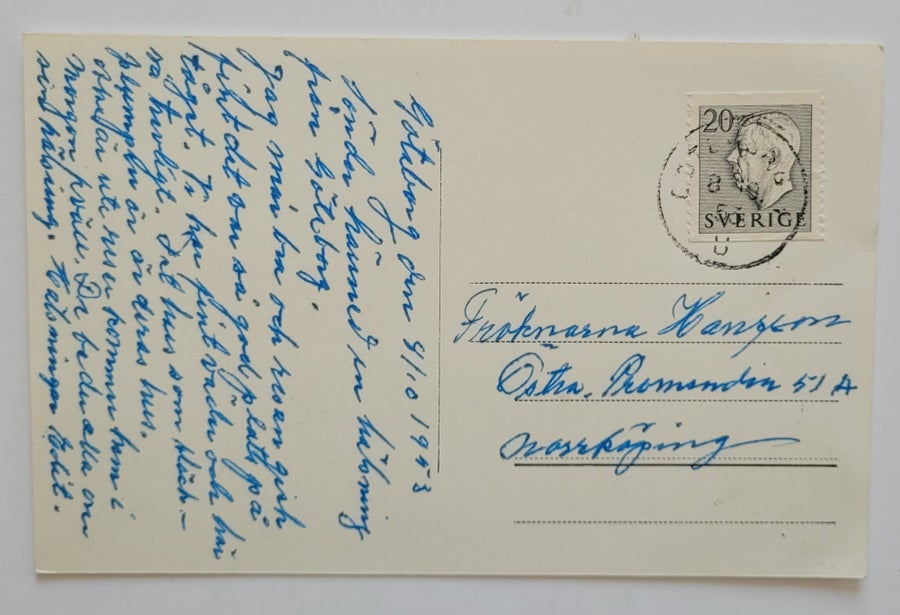 Göteborg den 4/10 1953
Sänder härmed en hälsning
från Göteborg.
Jag mår bra och resan gick
fint det var så god plats på
tåget. Vi har fint väder och har
så trevligt. Det hus som
är deras hus.
ute reser kommer hem i
morgon kväll. De beder alla om
sin hälsning. Hälsningar
20
SVERIGE
Fröknarna Hansson
Östra. Promenaden 51 A
Norrköping